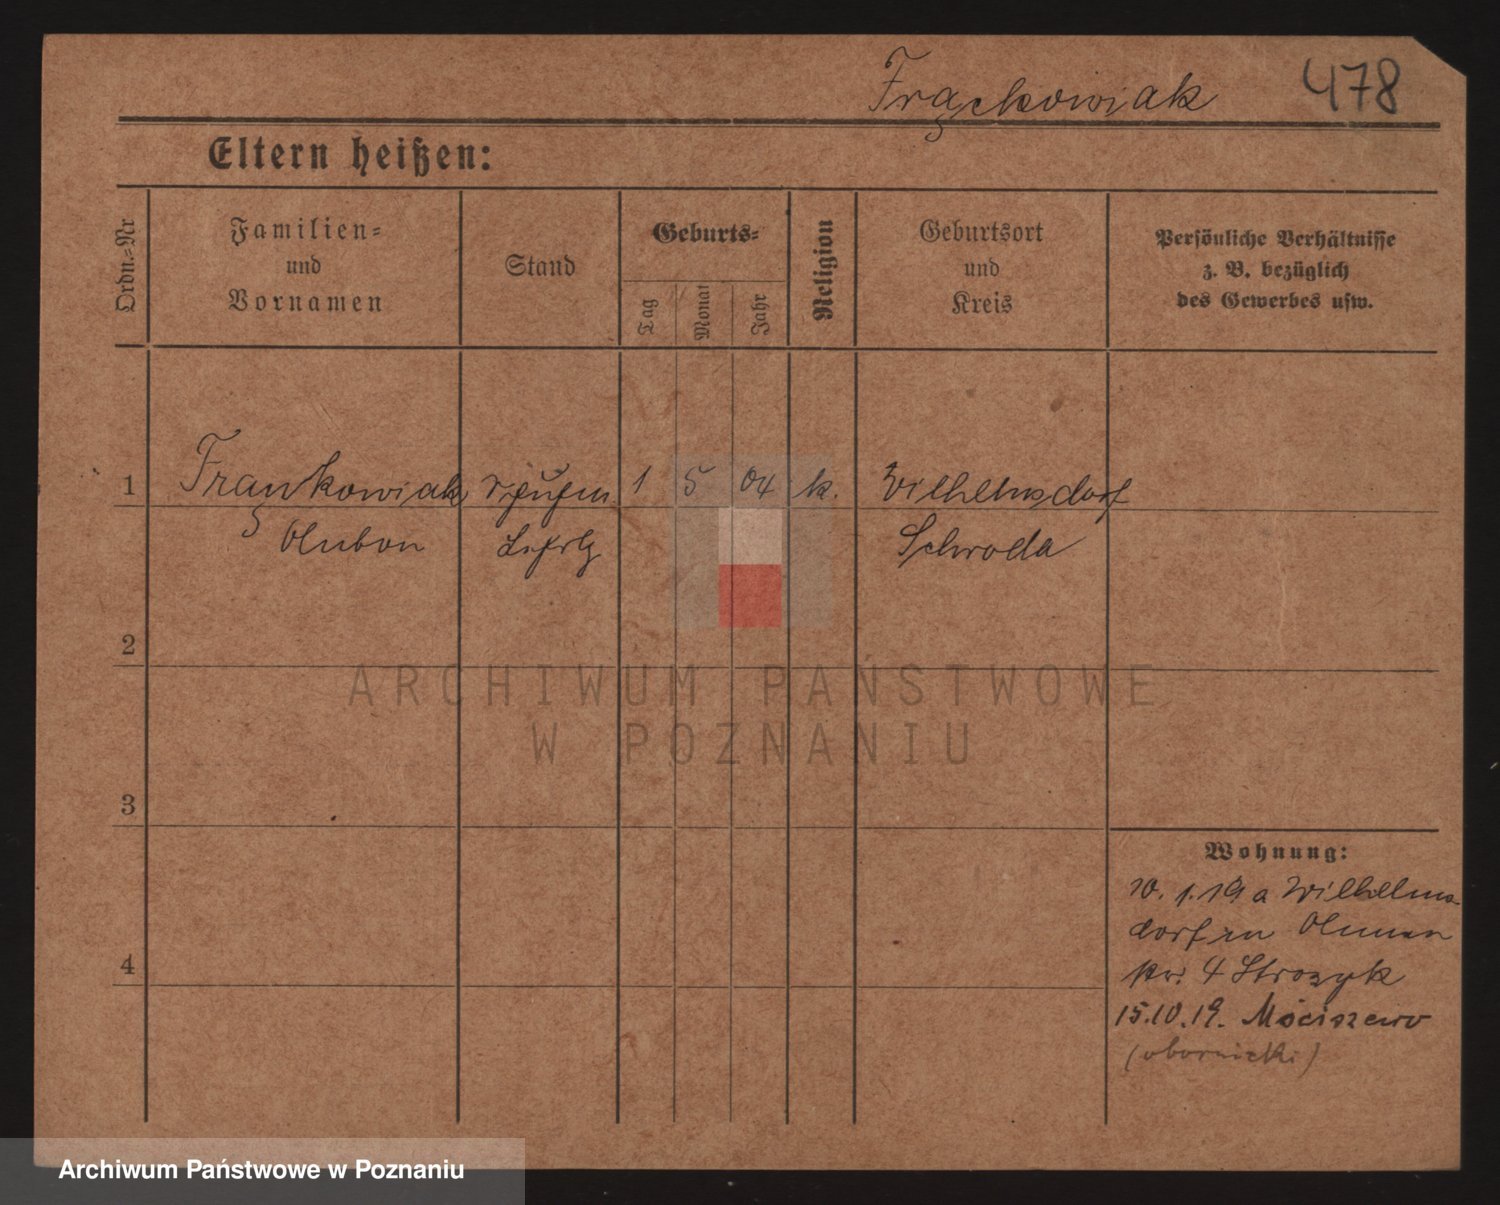 Frąckowiak 478
Eltern heißen:
Ordn.-Nr
Familien-
und
Vornamen
Stand
Geburts-
Tag
Monat
Jahr
Religion
Geburtsort
und
Kreis
Persönliche Verhältnisse
z. B. bezüglich
des Gewerbes usw.
1 Frąnkowiak 1 5 04 k. Wilhelmsdorf
Schroda
2
ARCHIWUM PAŃSTWOWE
W POZNANIU
3
Wohnung:
10. 1. 19 a Wilhelms-
dorf
4 Strozyk
4
15.10.19. Mściszewo
(obornicki)
Archiwum Państwowe w Poznaniu